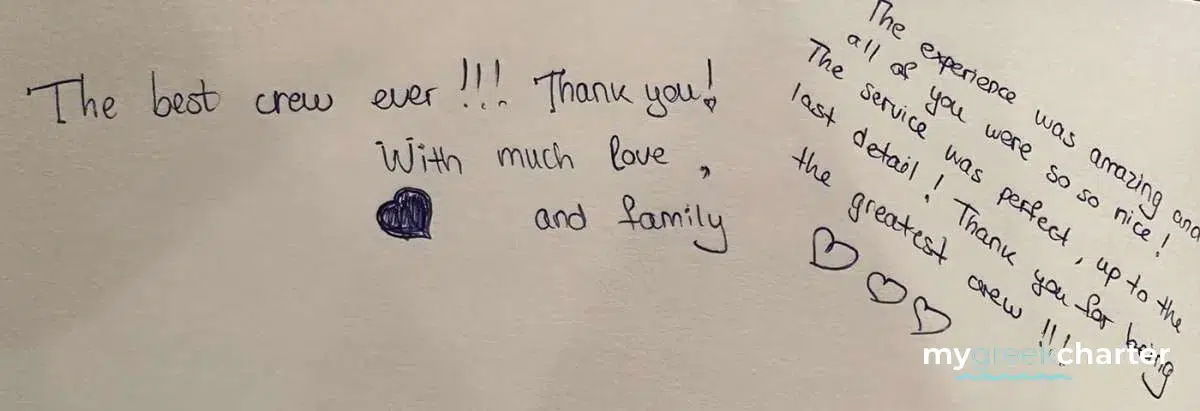 The best crew ever !!! Thank you!
With much love,
and family
The experience was amazing and
all of you were so so nice!
The service was perfect, up to the
last detail! Thank you for being
the greatest crew !!!
mygreekcharter